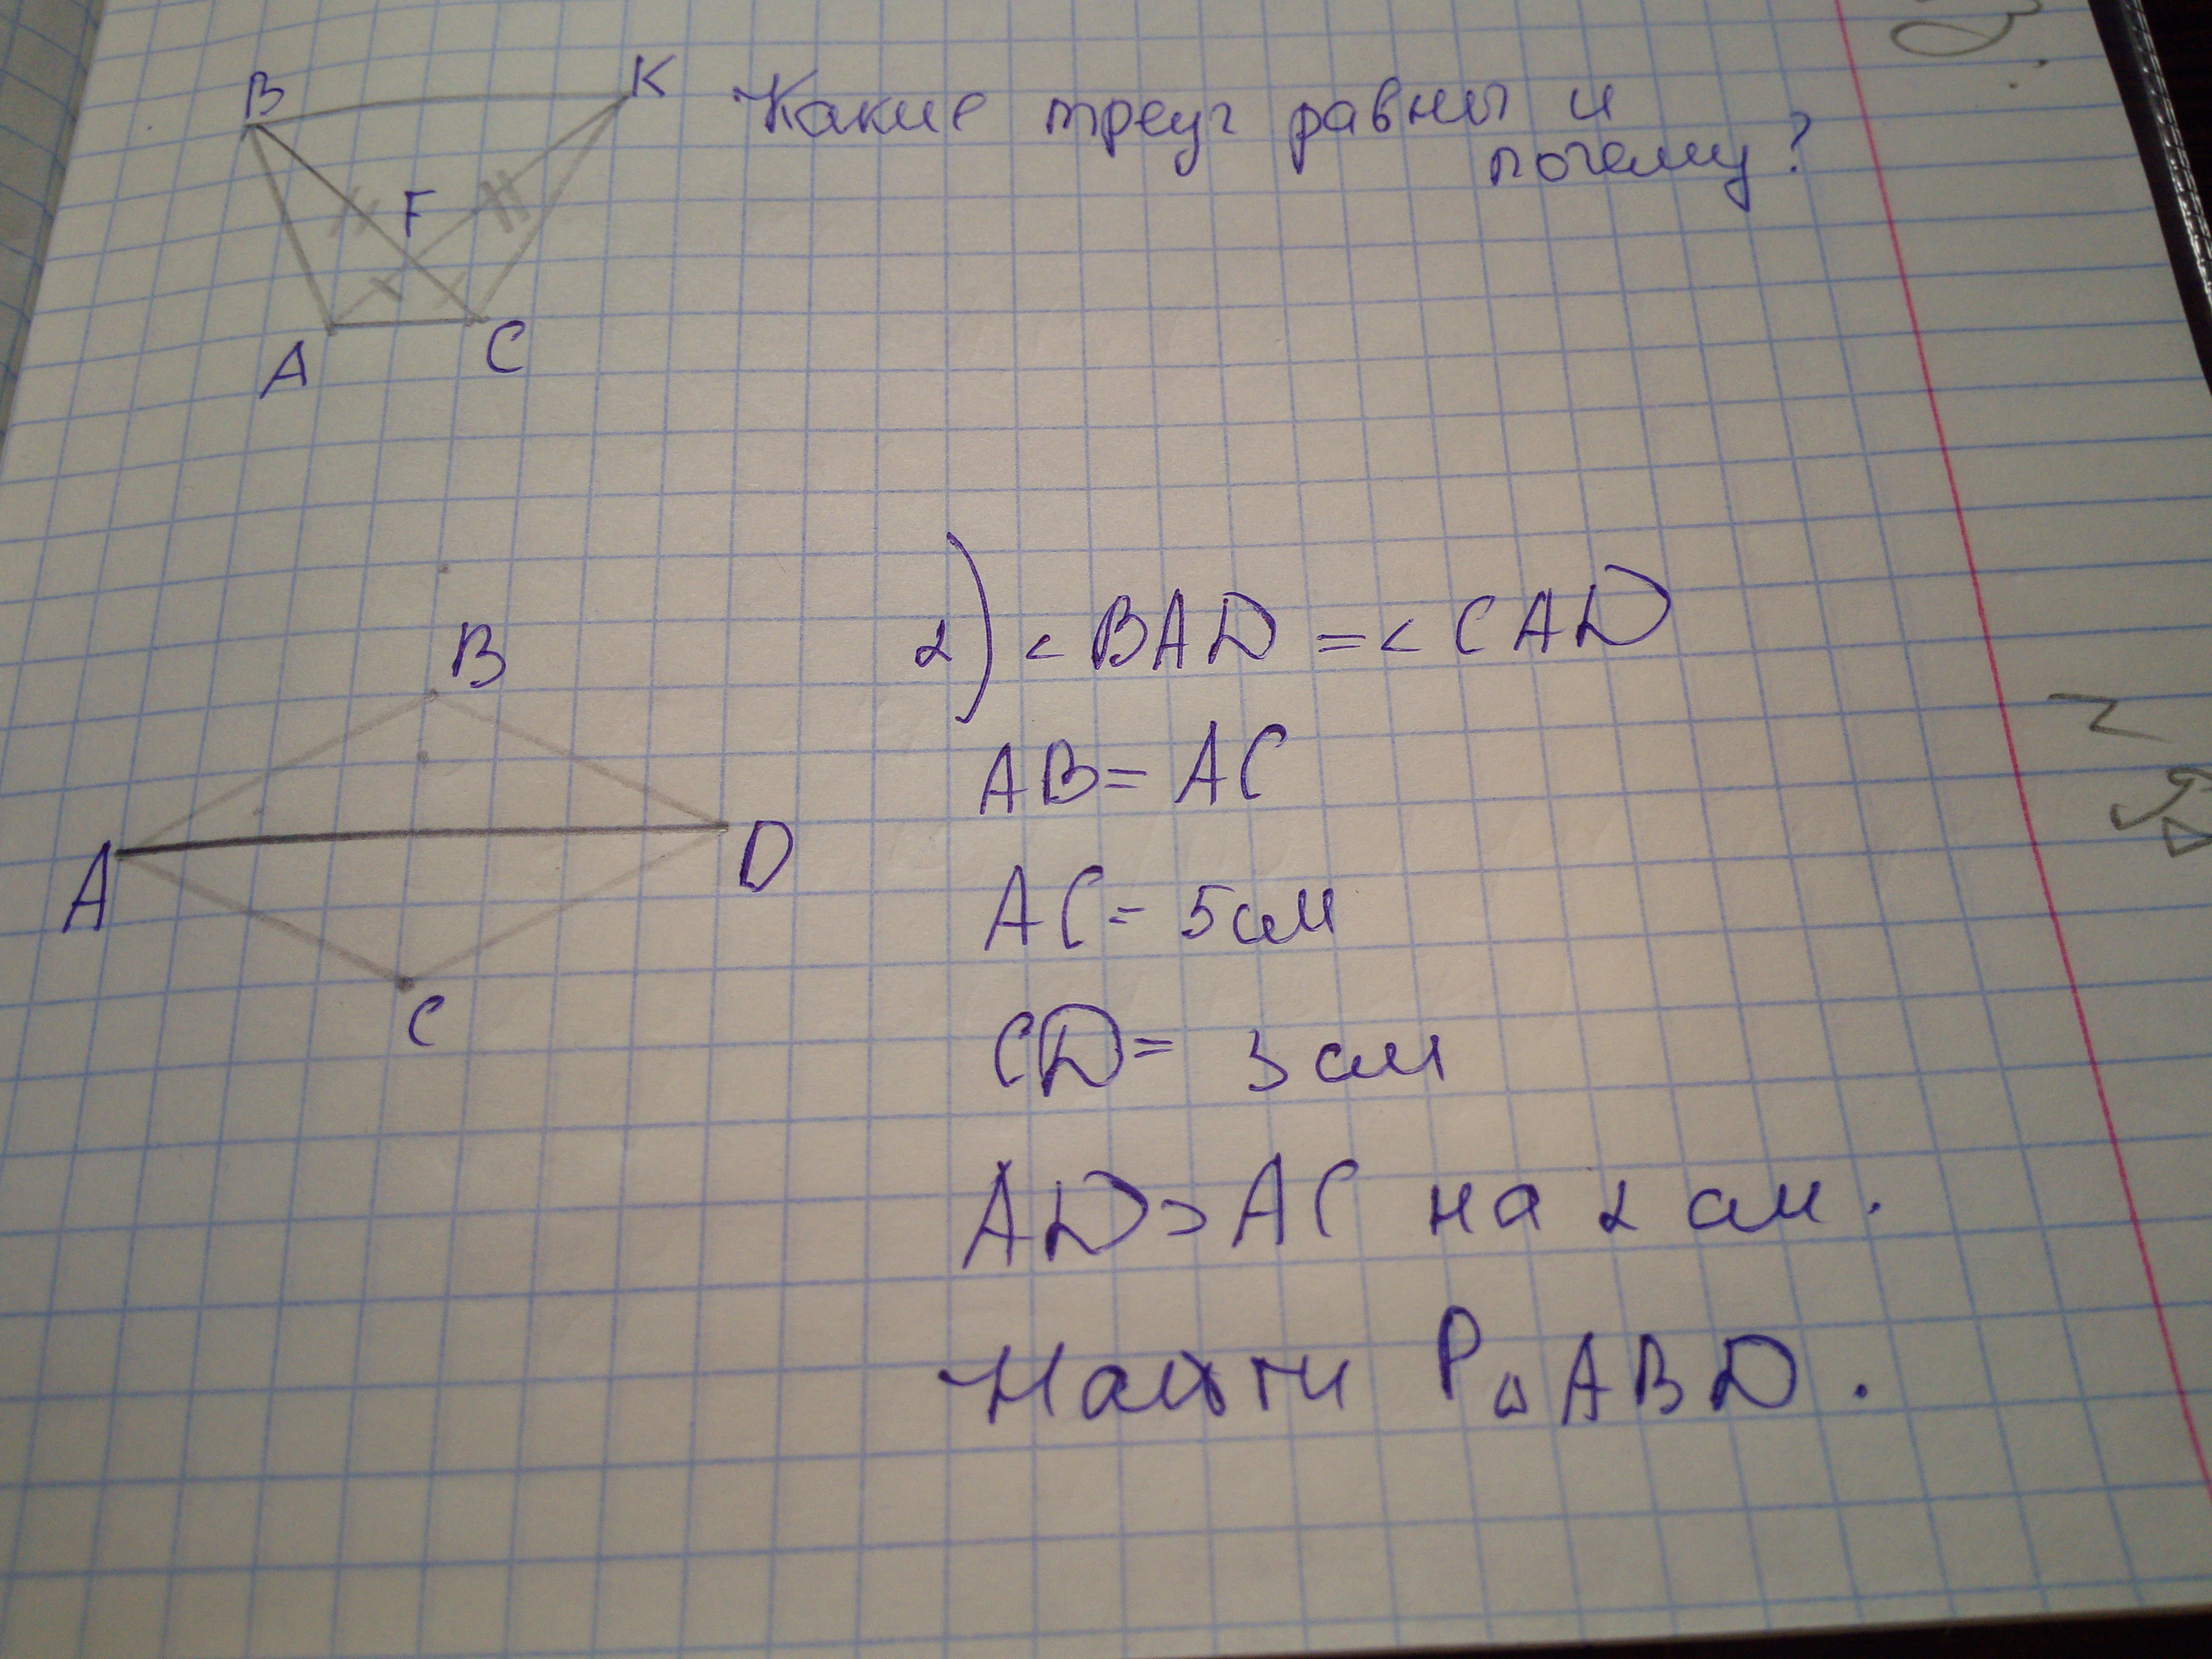 B
K
Какие треуг равны и
почему?
F
A
C
2) < BAD = < CAD
B
AB = AC
A
D
AC = 5 см
C
CD = 3 см
AD > AC на 2 см.
Найти P△ABD.